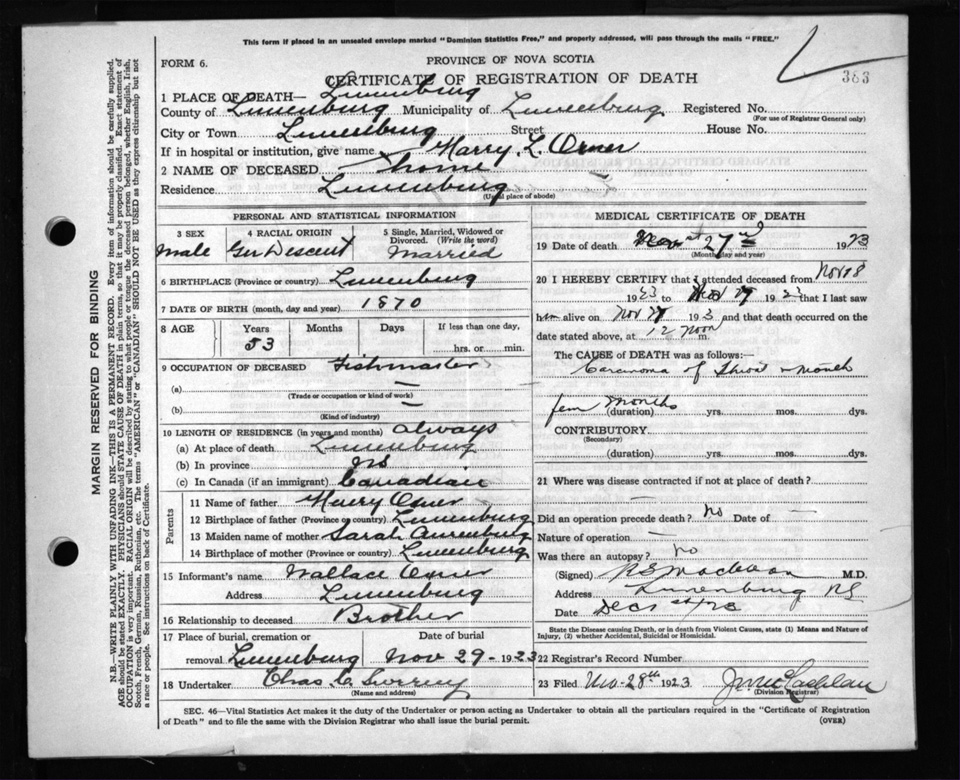 This form if placed in an unsealed envelope marked "Dominion Statistics Free," and property addressed, will pass through the mails "FREE."
FORM 6.
PROVINCE OF NOVA SCOTIA
383
CERTIFICATE OF REGISTRATION OF DEATH
1 PLACE OF DEATH— Lunenburg
County of Lunenburg Municipality of Lunenburg Registered No.
(For use of Registrar General only)
City or Town Lunenburg Street House No.
If in hospital or institution, give name Harry L. Orner
2 NAME OF DECEASED home
Residence Lunenburg
(Usual place of abode)
PERSONAL AND STATISTICAL INFORMATION
3 SEX 4 RACIAL ORIGIN 5 Single, Married, Widowed or Divorced. (Write the word)
Male Ger Descent Married
6 BIRTHPLACE (Province or country) Lunenburg
7 DATE OF BIRTH (month, day and year) 1870
8 AGE Years Months Days If less than one day,
53 hrs. or min.
9 OCCUPATION OF DECEASED Fishmaster
(a) —
(Trade or occupation or kind of work)
(b) —
(Kind of industry)
10 LENGTH OF RESIDENCE (in years and months) always
(a) At place of death Lunenburg
(b) In province NS
(c) In Canada (if an immigrant) Canadian
Parents
11 Name of father Henry Orner
12 Birthplace of father (Province or country) Lunenburg
13 Maiden name of mother Sarah
14 Birthplace of mother (Province or country) Lunenburg
15 Informant's name Wallace Orner
Address Lunenburg
16 Relationship to deceased Brother
17 Place of burial, cremation or Date of burial
removal Lunenburg Nov 29 - 1923
18 Undertaker Chas. C.
(Name and address)
MEDICAL CERTIFICATE OF DEATH
19 Date of death Nov 27 1923
(Month day and year)
20 I HEREBY CERTIFY that I attended deceased from Nov 18
1923 to Nov 27 192 that I last saw
him alive on Nov 27 1923 and that death occurred on the
date stated above, at 12 noon m.
The CAUSE of DEATH was as follows:—
Carcinoma of Throat & Mouth
few months
(duration) yrs. mos. dys.
CONTRIBUTORY.
(Secondary)
(duration) yrs. mos. dys.
21 Where was disease contracted if not at place of death?
—
Did an operation precede death? No Date of —
Nature of operation —
Was there an autopsy? No
(Signed) M.D.
Address Lunenburg NS
Date
State the Disease causing Death, or in death from Violent Causes, state (1) Means and Nature of
Injury, (2) whether Accidental, Suicidal or Homicidal.
22 Registrar's Record Number
23 Filed Nov-28th 1923
(Division Registrar)
SEC. 46—Vital Statistics Act makes it the duty of the Undertaker or person acting as Undertaker to obtain all the particulars required in the "Certificate of Registration
of Death" and to file the same with the Division Registrar who shall issue the burial permit. (OVER)
MARGIN RESERVED FOR BINDING
N.B.—WRITE PLAINLY WITH UNFADING INK—THIS IS A PERMANENT RECORD. Every item of information should be carefully supplied.
AGE should be stated EXACTLY. PHYSICIANS should STATE CAUSE OF DEATH in plain terms, so that it may be properly classified. Exact statement of
OCCUPATION is very important. RACIAL ORIGIN will be described by stating to what people or tongue the deceased person belonged, whether English, Irish,
Scotch, French, German, Russian, Ruthenian, etc. The terms "AMERICAN" or "CANADIAN" SHOULD NOT BE USED as they express citizenship but not
a race or people. See instructions on back of Certificate.